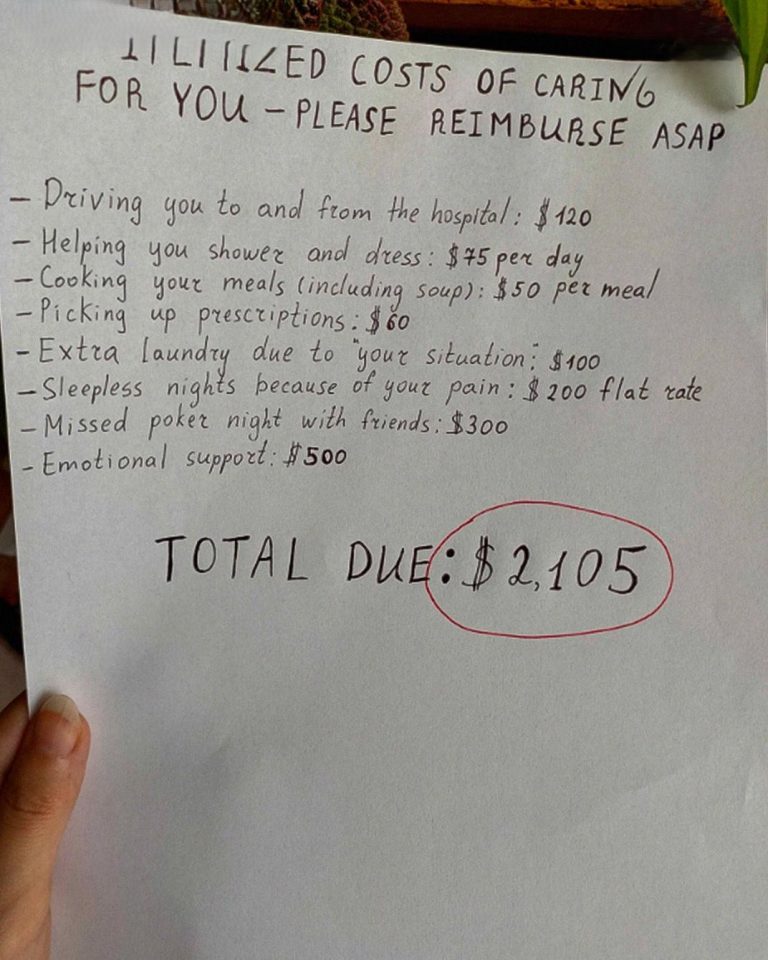 ITEMIZED COSTS OF CARING
FOR YOU – PLEASE REIMBURSE ASAP
– Driving you to and from the hospital: $120
– Helping you shower and dress: $75 per day
– Cooking your meals (including soup): $50 per meal
– Picking up prescriptions: $60
– Extra laundry due to "your situation": $100
– Sleepless nights because of your pain: $200 flat rate
– Missed poker night with friends: $300
– Emotional support: $500
TOTAL DUE: $2,105